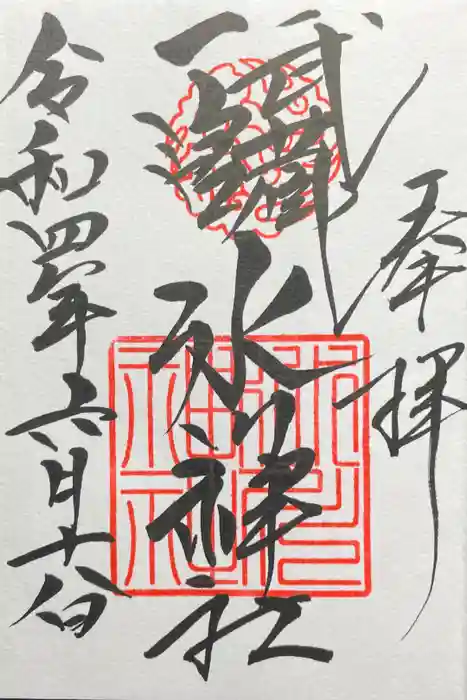 奉拝
武蔵
一宮
氷川神社
令和四年六月十八日
氷川
神社